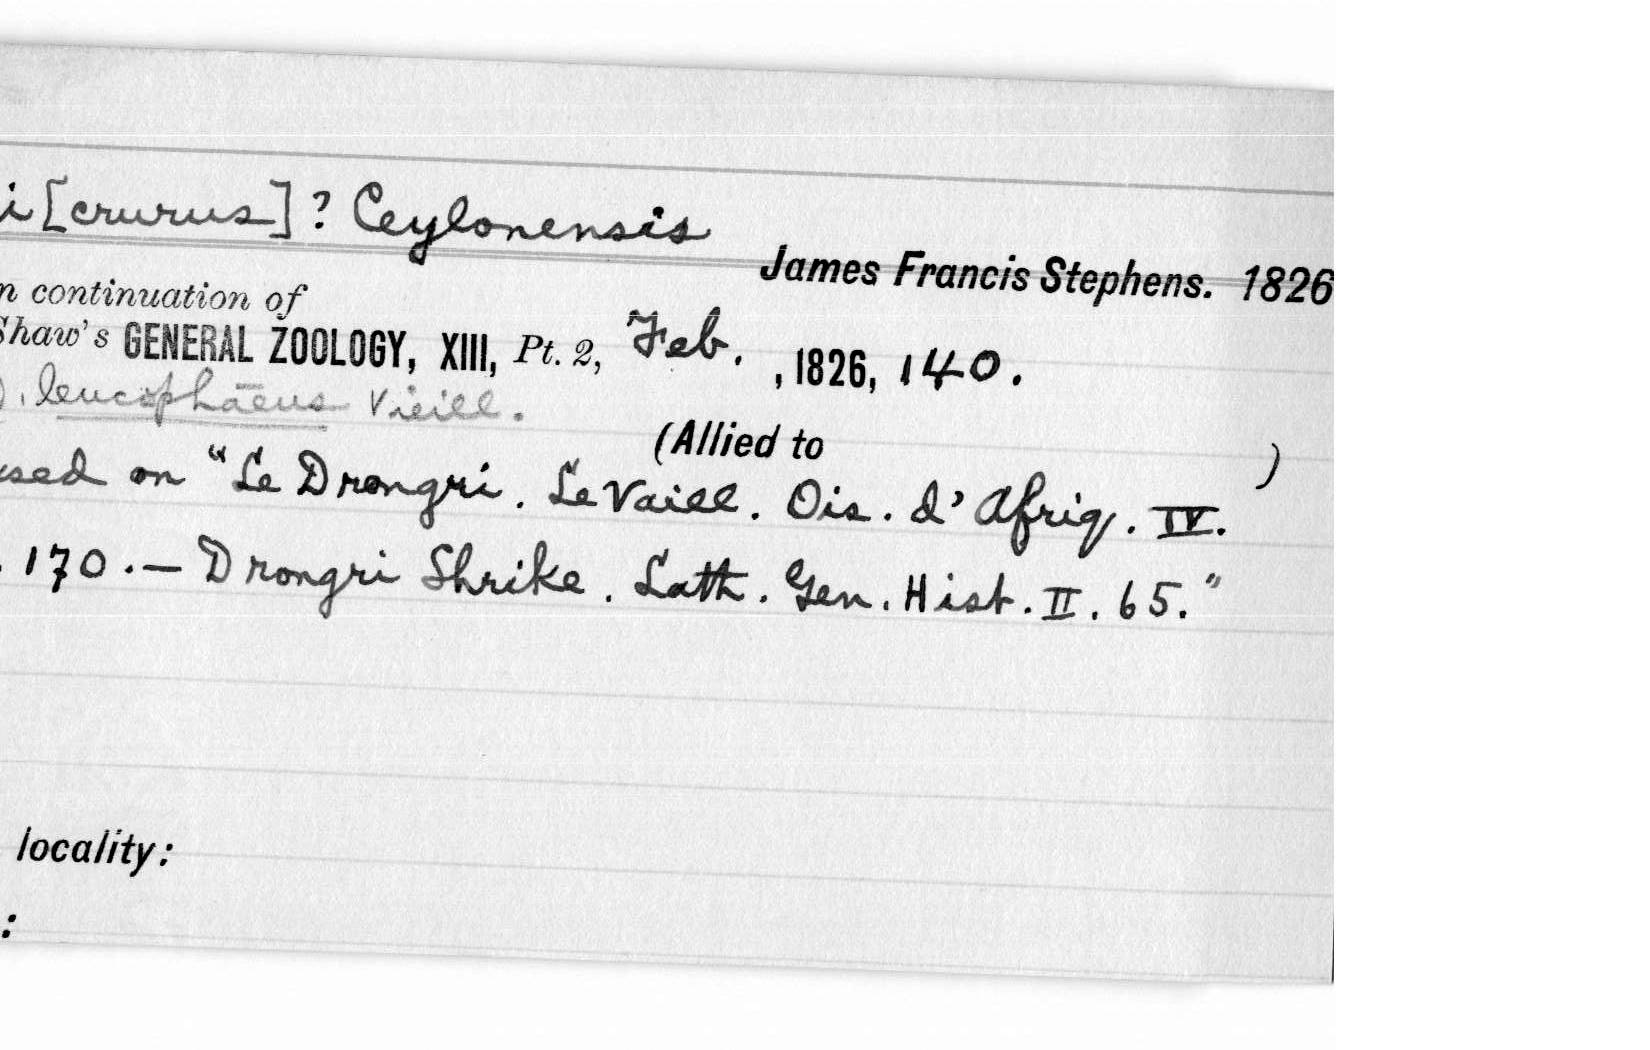 i [crurus]? Ceylonensis
James Francis Stephens. 1826
n continuation of
Shaw's GENERAL ZOOLOGY, XIII, Pt. 2, Feb. , 1826, 140.
). leucophaeus Vieill.
(Allied to )
used on "Le Drongri. Le Vaill. Ois. d'Afriq. IV.
. 170.— Drongri Shrike. Lath. Gen. Hist. II. 65."
locality:
: